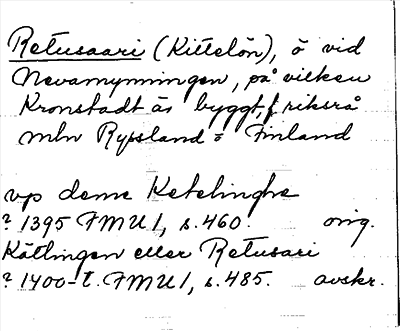 Retusaari (Kittelön), ö vid
Nevamynningen, på vilken
Kronstadt är byggt, f riksrå
mln Ryssland o Finland
vp deme Ketelinghe
? 1395 FMU I, s. 460. orig.
Kätlingen eller Retusari
? 1400-t. FMU I, s. 485. avskr.